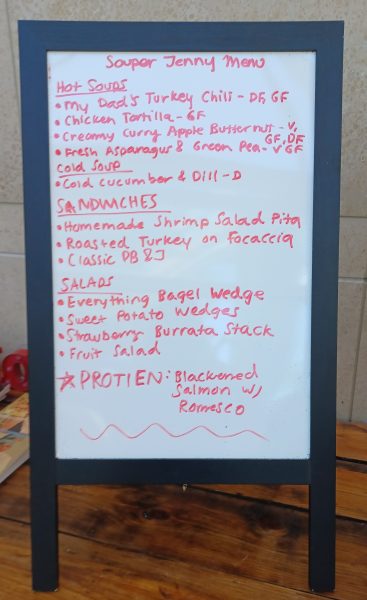 Souper Jenny Menu
Hot Soups
• My Dad's Turkey Chili - DF, GF
• Chicken Tortilla - GF
• Creamy Curry Apple Butternut - V,
GF, DF
• Fresh Asparagus & Green Pea - V GF
Cold Soup
• Cold Cucumber & Dill - D
SANDWICHES
• Homemade Shrimp Salad Pita
• Roasted Turkey on Focaccia
• Classic PB & J
SALADS
• Everything Bagel Wedge
• Sweet Potato Wedges
• Strawberry Burrata Stack
• Fruit Salad
☆ PROTIEN: Blackened
Salmon w/
Romesco